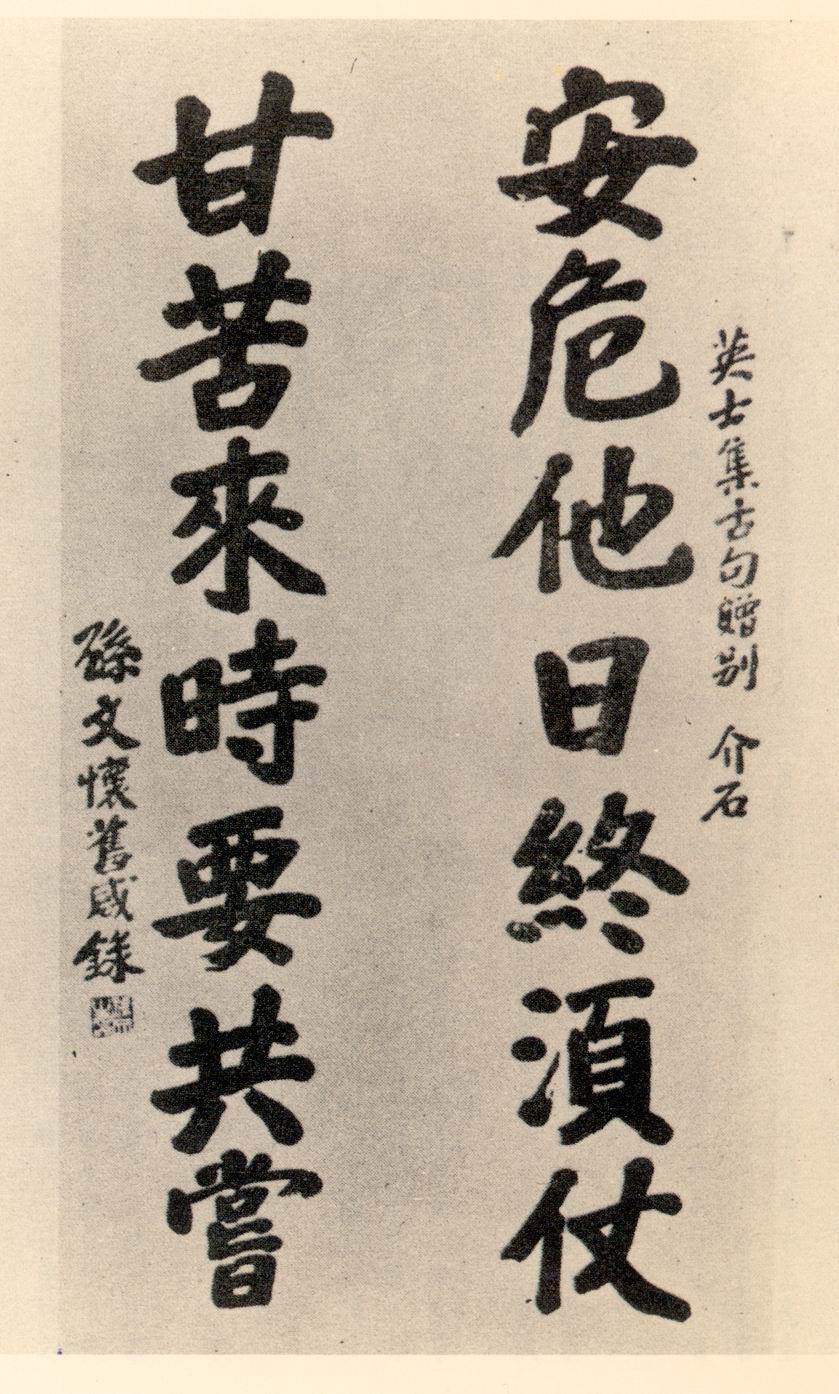 英士集古句贈别 介石
安危他日終須仗
甘苦來時要共嘗
孫文懷舊感錄